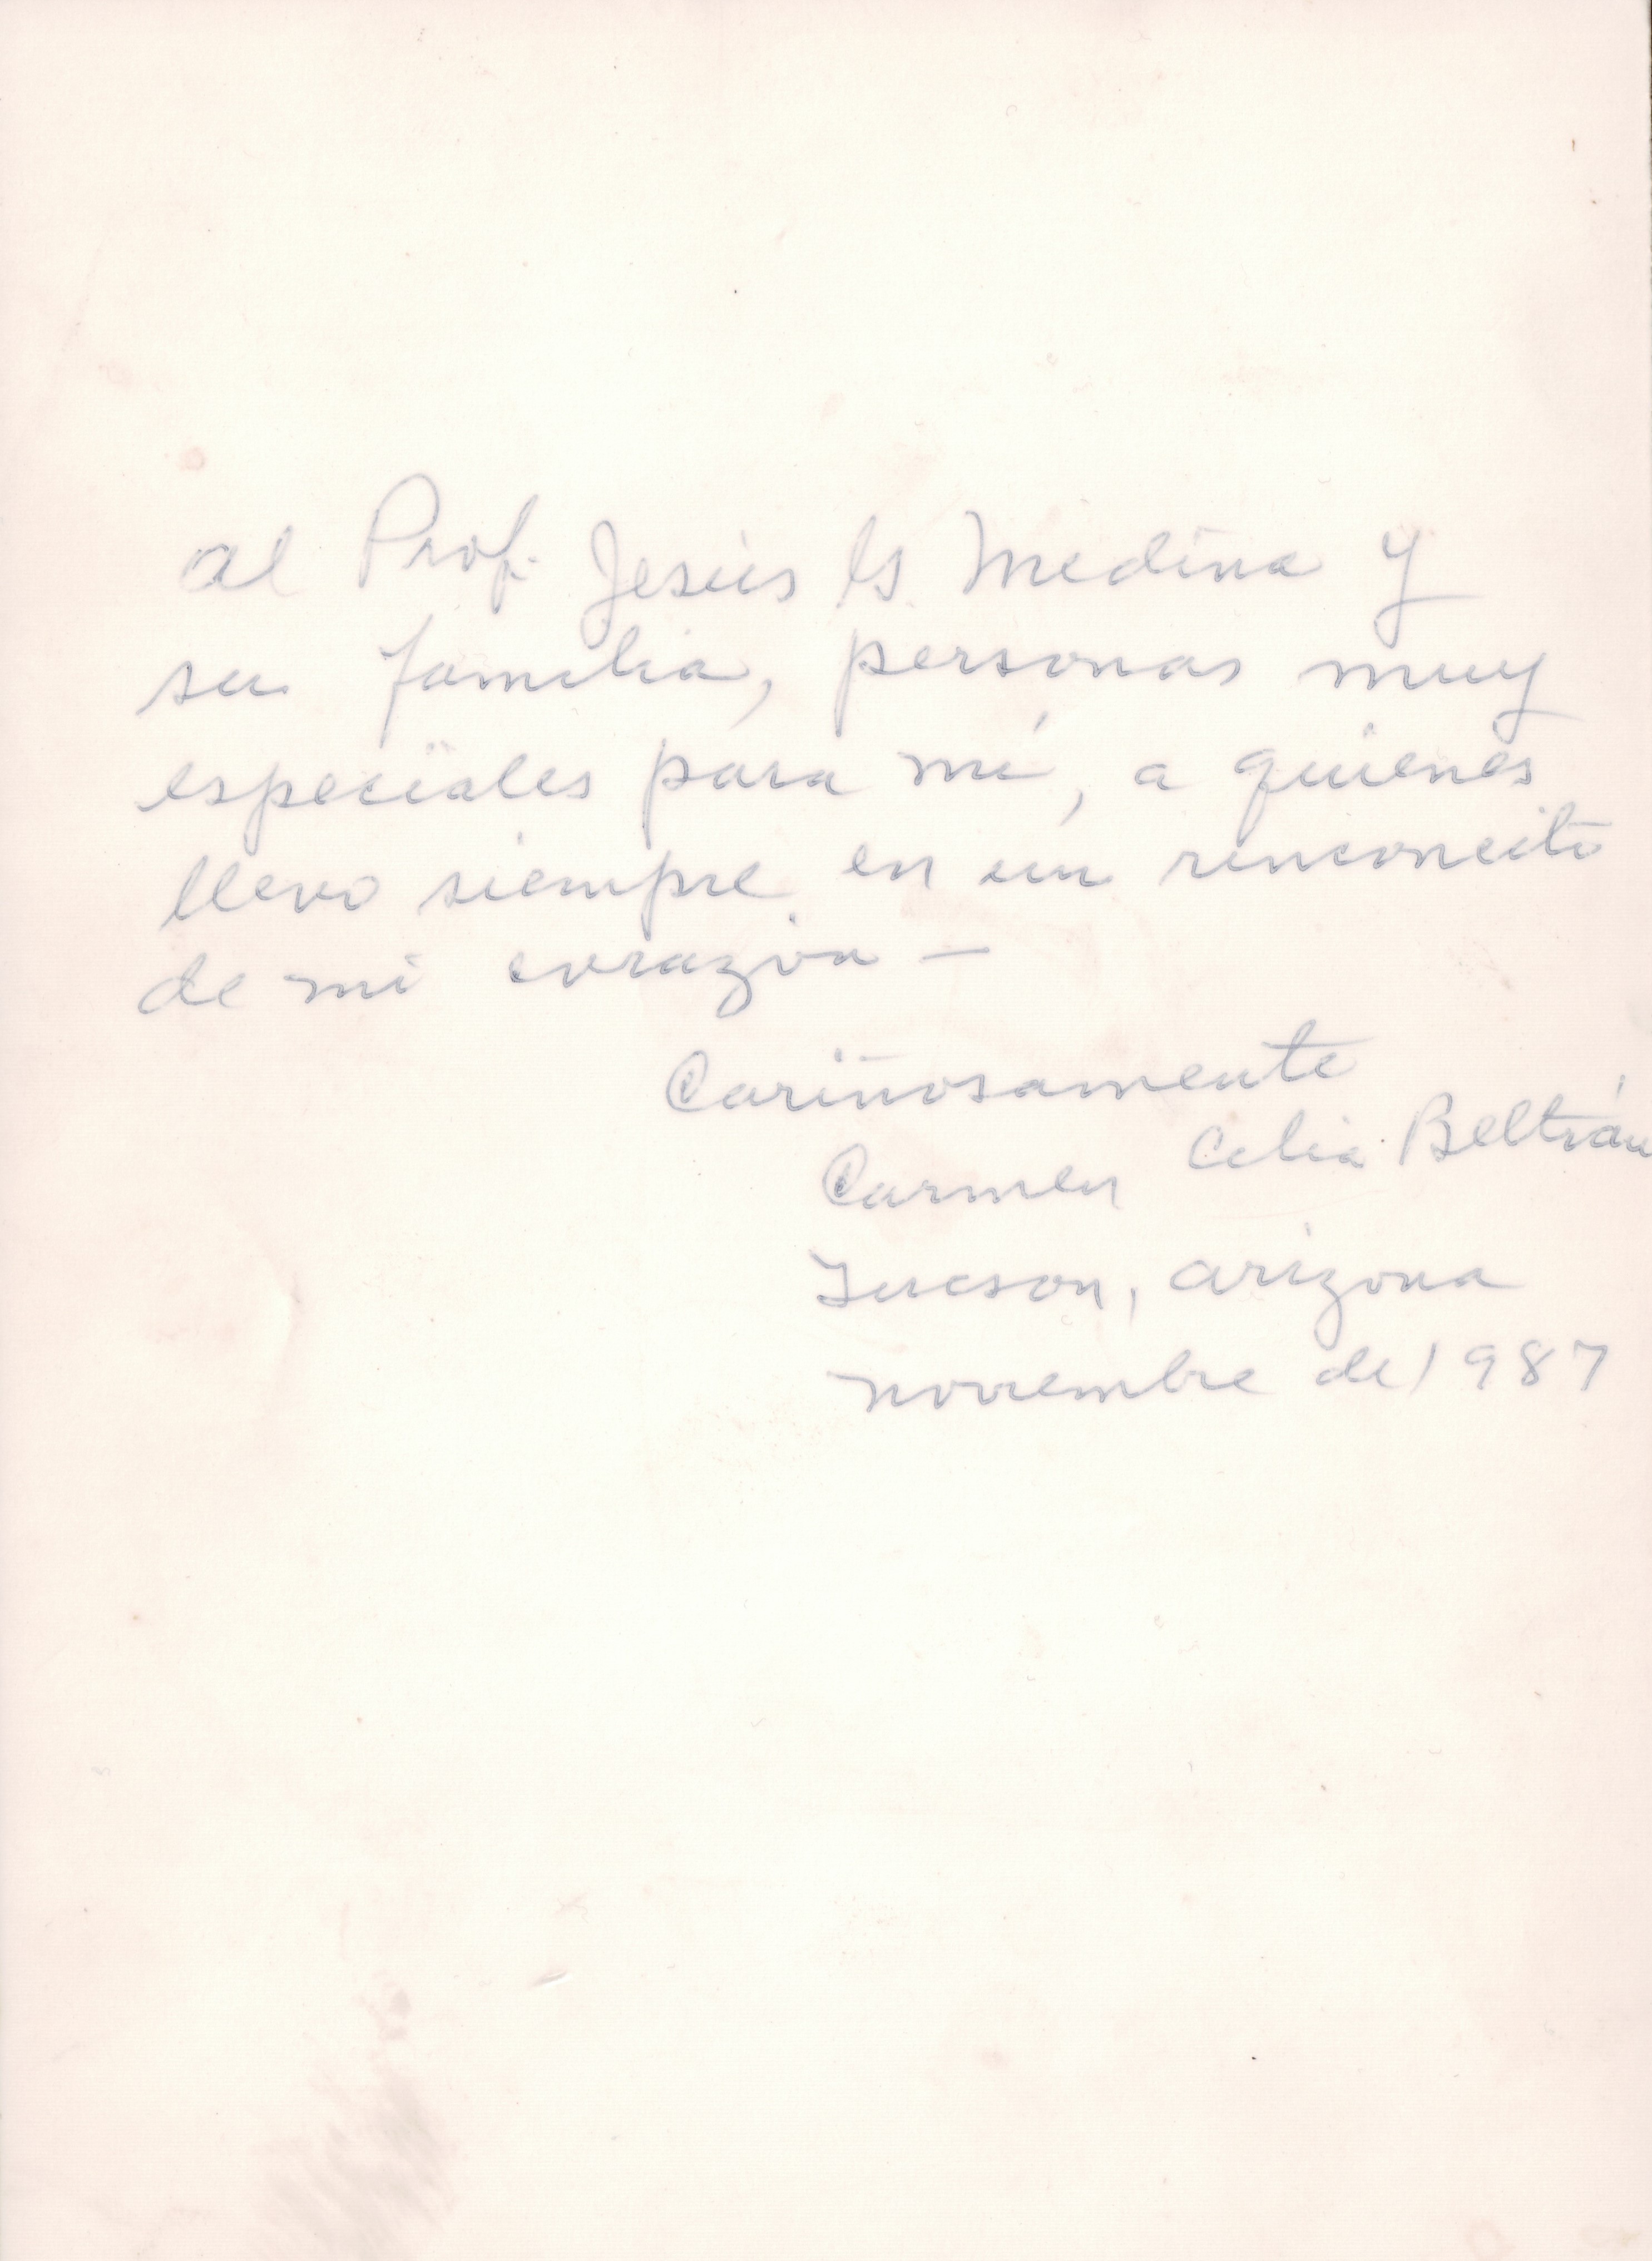 al Prof. Jesús G. Medina y
su familia, personas muy
especiales para mí, a quienes
llevo siempre en un rinconcito
de mi corazón —
Cariñosamente
Carmen Celia Beltrán
Tucson, Arizona
noviembre de 1987